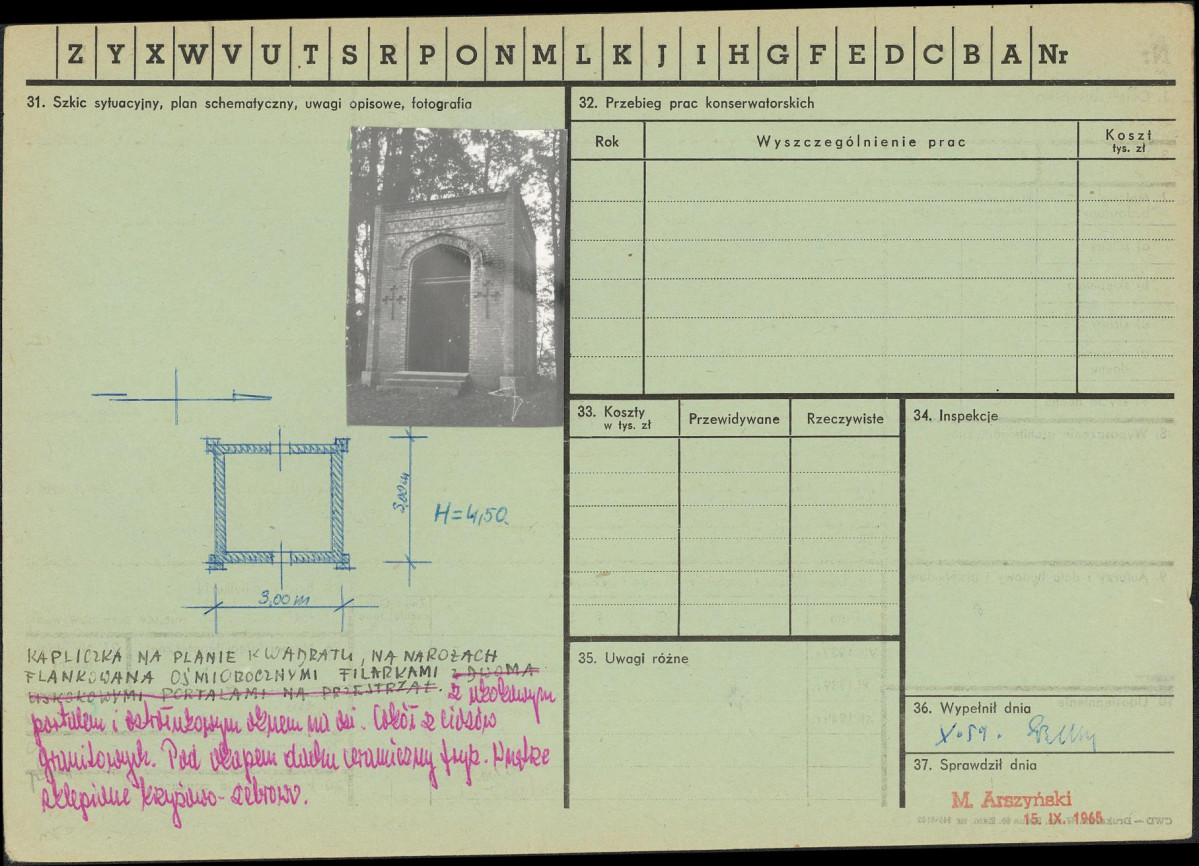 Z Y X W V U T S R P O N M L K J I H G F E D C B A Nr
31. Szkic sytuacyjny, plan schematyczny, uwagi opisowe, fotografia
3,00m
H=4,50.
3,00m
KAPLICZKA NA PLANIE KWADRATU, NA NAROŻACH
FLANKOWANA OŚMIOBOCZNYMI FILARKAMI Z DWOMA
USKOKOWYMI PORTALAMI NA PRZESTRZAŁ. Z uskokowym
portalem i ostrołukowym oknem na osi. Cokół z ciosów
granitowych. Pod okapem dachu ceramiczny fryz. Wnętrze
sklepione krzyżowo-żebrowo.
32. Przebieg prac konserwatorskich
Rok Wyszczególnienie prac Koszt
tys. zł
33. Koszty Przewidywane Rzeczywiste
w tys. zł
34. Inspekcje
35. Uwagi różne
36. Wypełnił dnia
X.59.
37. Sprawdził dnia
M. Arszyński
15. IX. 1965